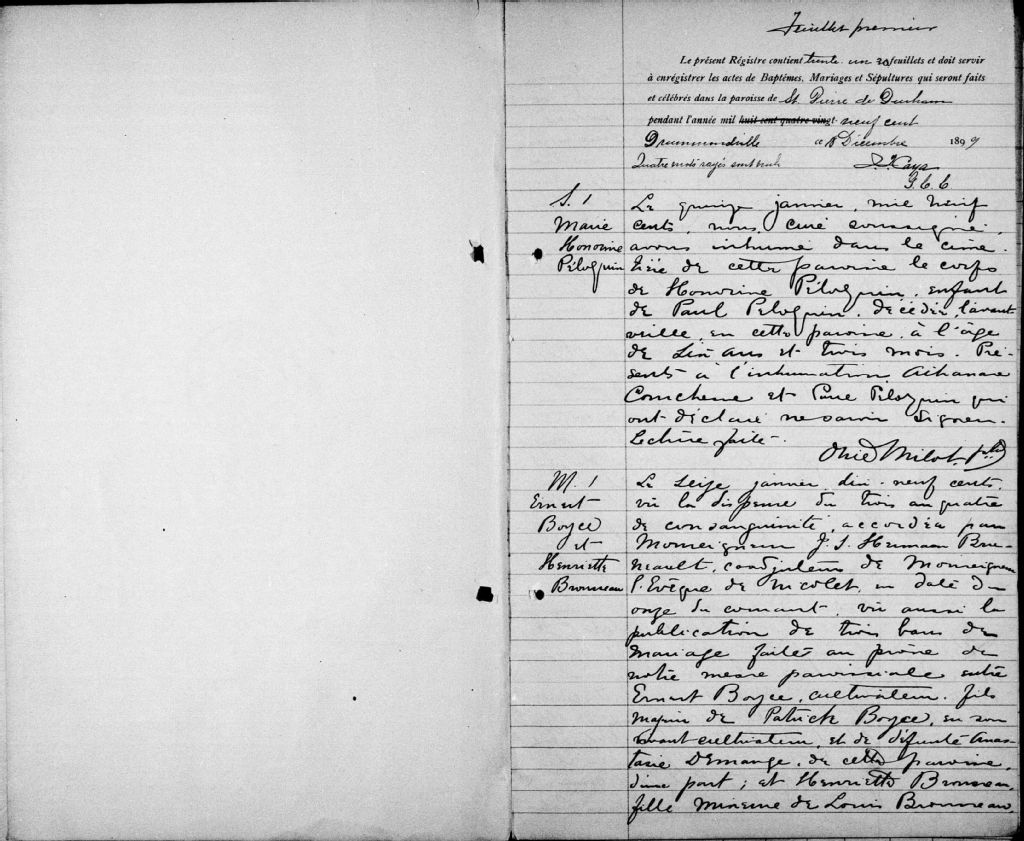 Feuillet premier
Le présent Régistre contient trente un feuillets et doit servir
à enrégistrer les actes de Baptêmes, Mariages et Sépultures qui seront faits
et célébrés dans la paroisse de St. Pierre de Durham
pendant l'année mil huit cent quatre vingt neuf cent
Drummondville ce Décembre 1899
Quatre mots rayés sont nuls
G. C. C.
S. 1
Marie
Honorine
Péloquin
Le quinze janvier, mil neuf
cents, nous, curé soussigné,
avons inhumé dans le cime-
tière de cette paroisse le corps
de Honorine Péloquin, enfant
de Paul Peloquin, décédée, l'avant
veille, en cette paroisse, à l'âge
de six ans et trois mois. Pré-
sents à l'inhumation, Athanase
et Paul Péloquin qui
ont déclaré ne savoir signer.
Lecture faite.
Ovid Milot, ptre
M. 1
Ernest
Boyce
et
Henriette
Bronneau
Le seize janvier, dix-neuf cents,
vu la dispense du trois au quatre
de consanguinité, accordée par
Monseigneur J. S. Hermann Bru-
neault, coadjuteur de Monseigneur
l'Evêque de Nicolet, en date du
onze du courant, vu aussi la
publication de trois bans de
mariage faite au prône de
notre messe paroissiale entre
Ernest Boyce, cultivateur, fils
majeur de Patrick Boyce, en son
vivant cultivateur, et de défunte Anas-
tasie Demange, de cette paroisse,
d'une part; et Henriette Bronneau,
fille mineure de Louis Bronneau,